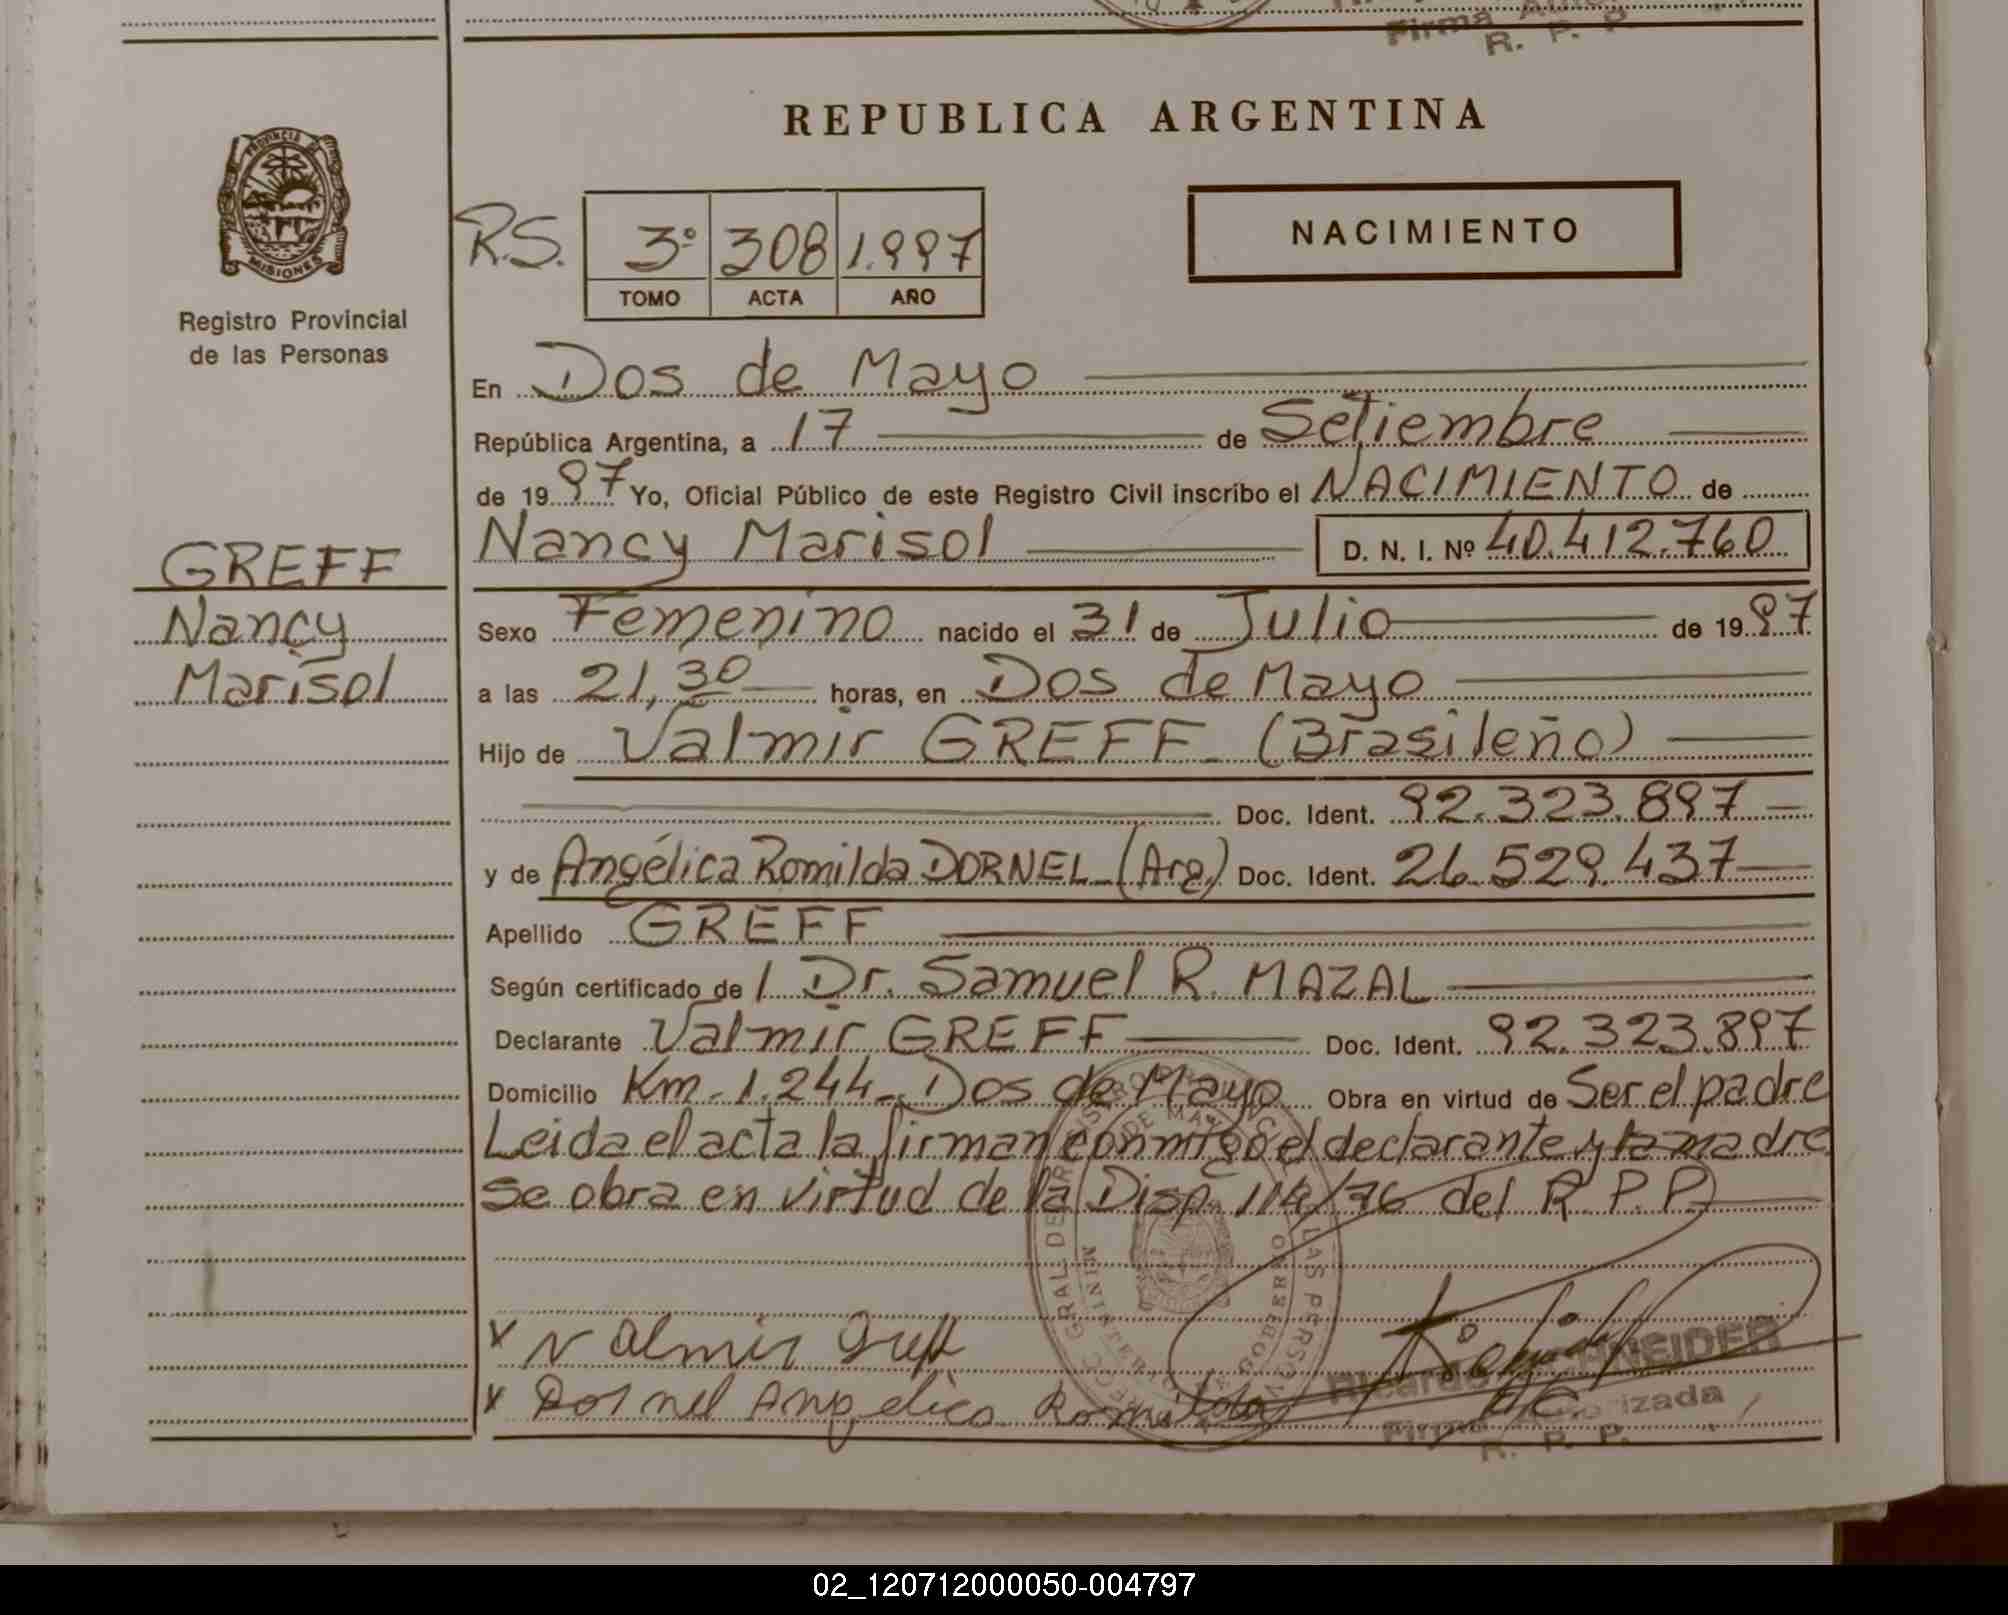 Firma
R. P. P.
REPUBLICA ARGENTINA
PROVINCIA DE
MISIONES
Registro Provincial
de las Personas
R.S. 3º 308 1.997
TOMO ACTA AÑO
NACIMIENTO
En Dos de Mayo
República Argentina, a 17 de Setiembre
de 1997 Yo, Oficial Público de este Registro Civil inscribo el NACIMIENTO de
GREFF
Nancy
Marisol
Nancy Marisol D. N. I. Nº 40.412.760
Sexo Femenino nacido el 31 de Julio de 1997
a las 21,30 horas, en Dos de Mayo
Hijo de Valmir GREFF (Brasileño)
Doc. Ident. 92.323.897
y de Angélica Romilda DORNEL (Arg.) Doc. Ident. 26.529.437
Apellido GREFF
Según certificado de / Dr. Samuel R. MAZAL
Declarante Valmir GREFF Doc. Ident. 92.323.897
Domicilio Km. 1.244 Dos de Mayo Obra en virtud de Ser el padre
Leida el acta la firman conmigo el declarante y la madre
se obra en virtud de la Disp. 114/76 del R.P.P.
x Valmir Greff
x Dornel Angelica Romilda
Ricardo SCHNEIDER
Firma Autorizada
R. P. P.
02_120712000050-004797